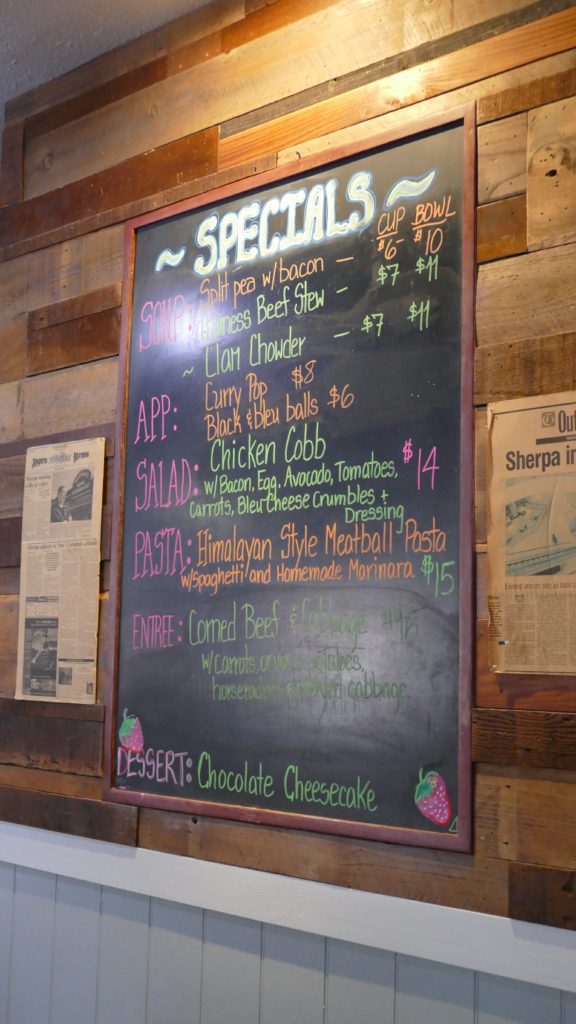 ~ SPECIALS ~
CUP BOWL
SOUP: Split pea w/bacon — $6 $10
Beef Stew - $7 $11
~ Clam Chowder - $7 $11
APP: Curry Pop $8
Black & bleu balls $6
SALAD: Chicken Cobb $14
w/Bacon, Egg, Avocado, Tomatoes,
Carrots, Bleu Cheese Crumbles +
Dressing
PASTA: Himalayan Style Meatball Pasta
w/Spaghetti and Homemade Marinara $15
ENTREE: Corned Beef & Cabbage
w/carrots, onions, potatoes,
horseradish cabbage
DESSERT: Chocolate Cheesecake
Out
Sherpa in